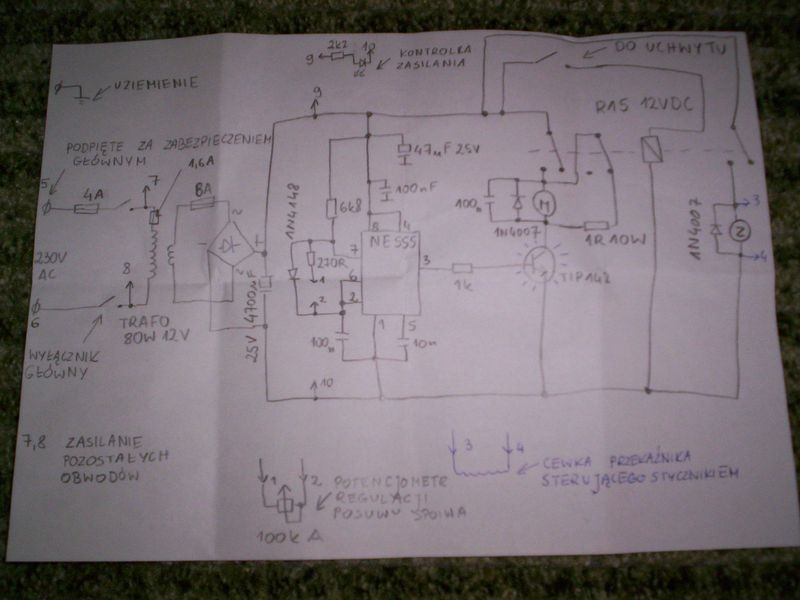 2k2
9
10
KONTROLKA
ZASILANIA
DO UCHWYTU
UZIEMIENIE
9
R15 12VDC
PODPIĘTE ZA ZABEZPIECZENIEM
GŁÓWNYM
47µF 25V
1,6A
5
4A
7
8A
100nF
1N4148
6k8
100n
1N4007
M
1R 10W
3
8
4
NE555
7
270R
1
6
2
2
3
1k
TIP142
1N4007
2
4
230V
AC
~
~
+
-
8
6
TRAFO
80W 12V
4700µF
25V
100n
1
5
10n
WYŁĄCZNIK
GŁÓWNY
10
7,8 ZASILANIE
POZOSTAŁYCH
OBWODÓW
1
2
POTENCJOMETR
REGULACJI
POSUWU SPOIWA
100k A
3
4
CEWKA PRZEKAŹNIKA
STERUJĄCEGO STYCZNIKIEM